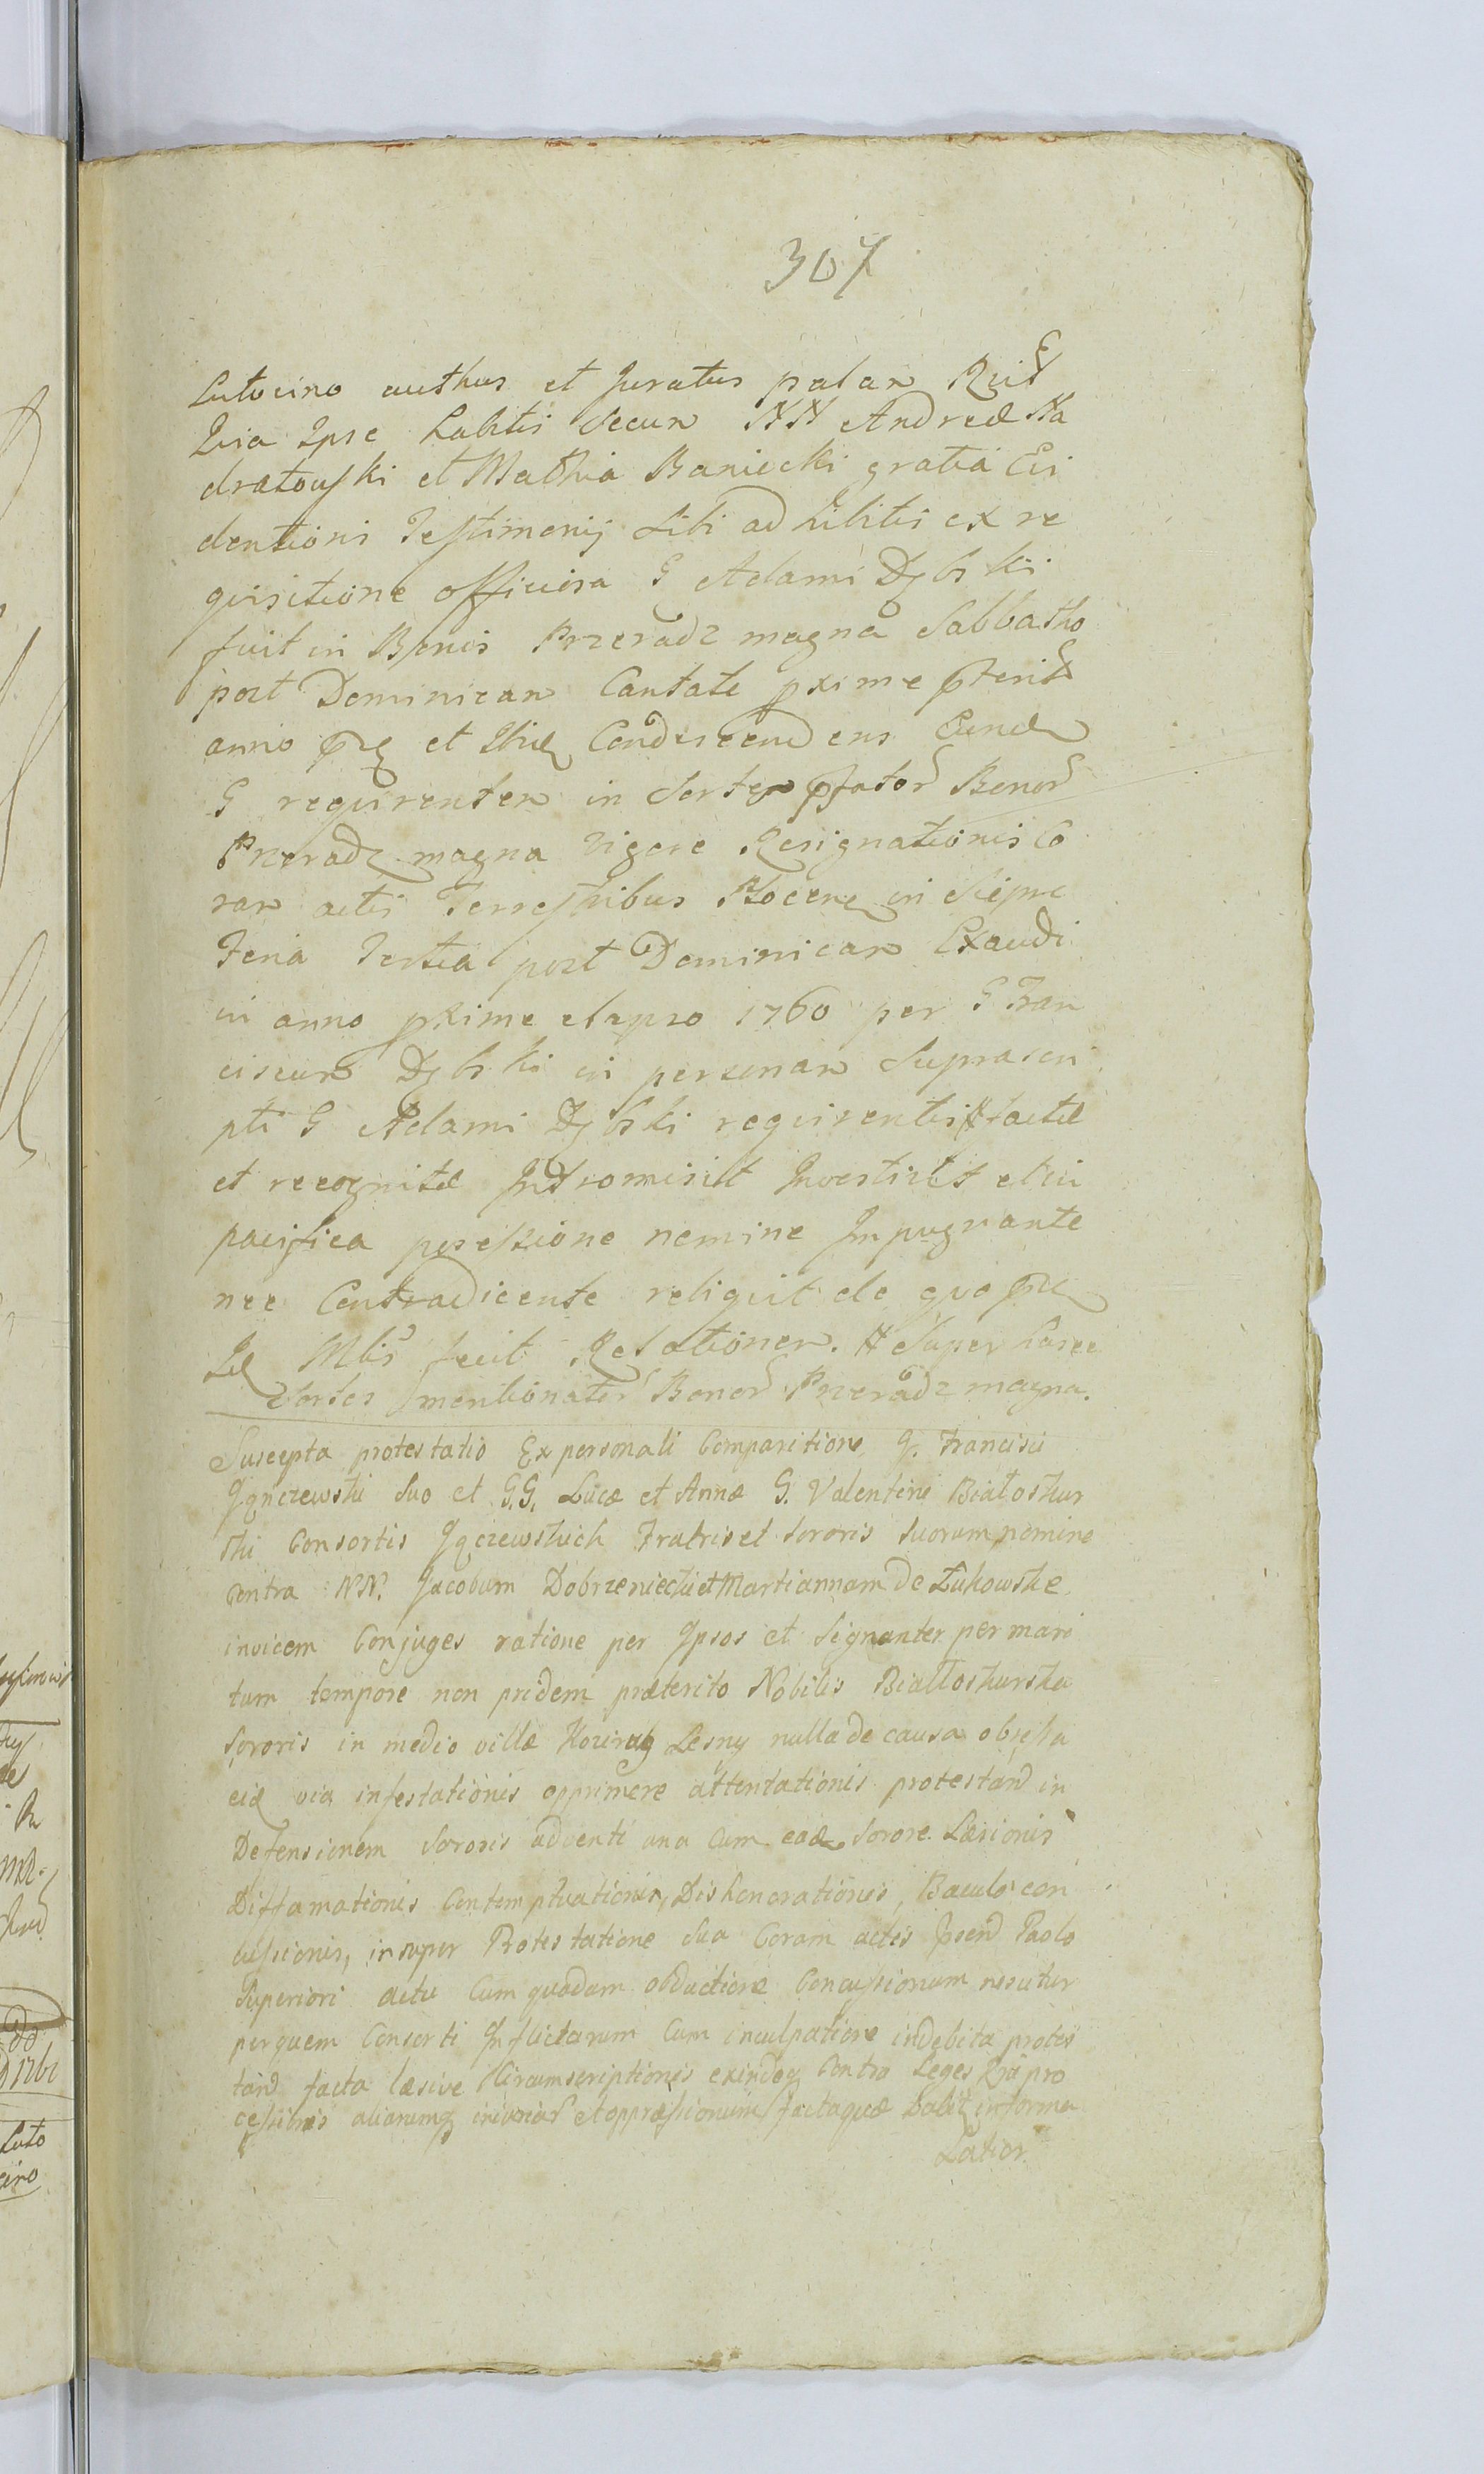 307
Lutocino authus et Juratus palam Rcit
Quia Ipse habitis secum NN Andreæ Na
dratowski et Mathia Baniecki gratia Evi
dentioris Testimonij sibi adhibitis ex re
quisitione officiosa G Adami Dębski
fuit in Bonis Przeradz magna Sabbatho
post Dominicam Cantate pxime pterit
anno et Ibid Condescendens Eund
G requirentem in Sortem pfator Bonor
Przeradz magna vigore Resignationis Co
ram actis Terrestribus Plocen in Sieprc
Feria Tertia post Dominicam Exaudi
in anno pxime elapso 1760 per G Fran
ciscum Dębski in personam Suprascri
pti G Adami Dębski requirentis # factæ
et recognitæ Intromisit Investivit et in
pacifica possessione nemine Impugnante
nec Contradicente reliquit de quo
Id Mtis fecit Relationem. # Super hasce
Sortes mentionator Bonor Przeradz magna.
Suscepta protestatio Ex personali Comparitione G. Francisci
Suo et G.G. Lucæ et Annæ G. Valentini Białoskur
ski Consortis Fratris et Sororis Suorum nomine
contra NN. Jacobum Dobrzeniecki et Martiannam de Żukowskie
invicem Conjuges ratione per Ipsos et Signanter per mari
tum tempore non pridem præterito Nobilis Białłoskurska
Sororis in medio villæ Lesny nulla de causa obsessa
eid via infestationis opprimere attentationis protestand in
Defensionem Sororis adventi una cum ead Sorore Læsionis
Diffamationis Contemptuationis, Dishonorationis, Baculo con
cussionis, insuper Protestatione Sua Coram actis Paolo
Superiori actu Cum quadam obductione Concussionum nescitur
per quem Consorti Inflictarum Cum inculpatione indebita protes
tand facta læsive Circumscriptionis exindeq Contra Leges pro
cessibus aliarumq iniuriar et oppressionum factaquæ in forma
Latior